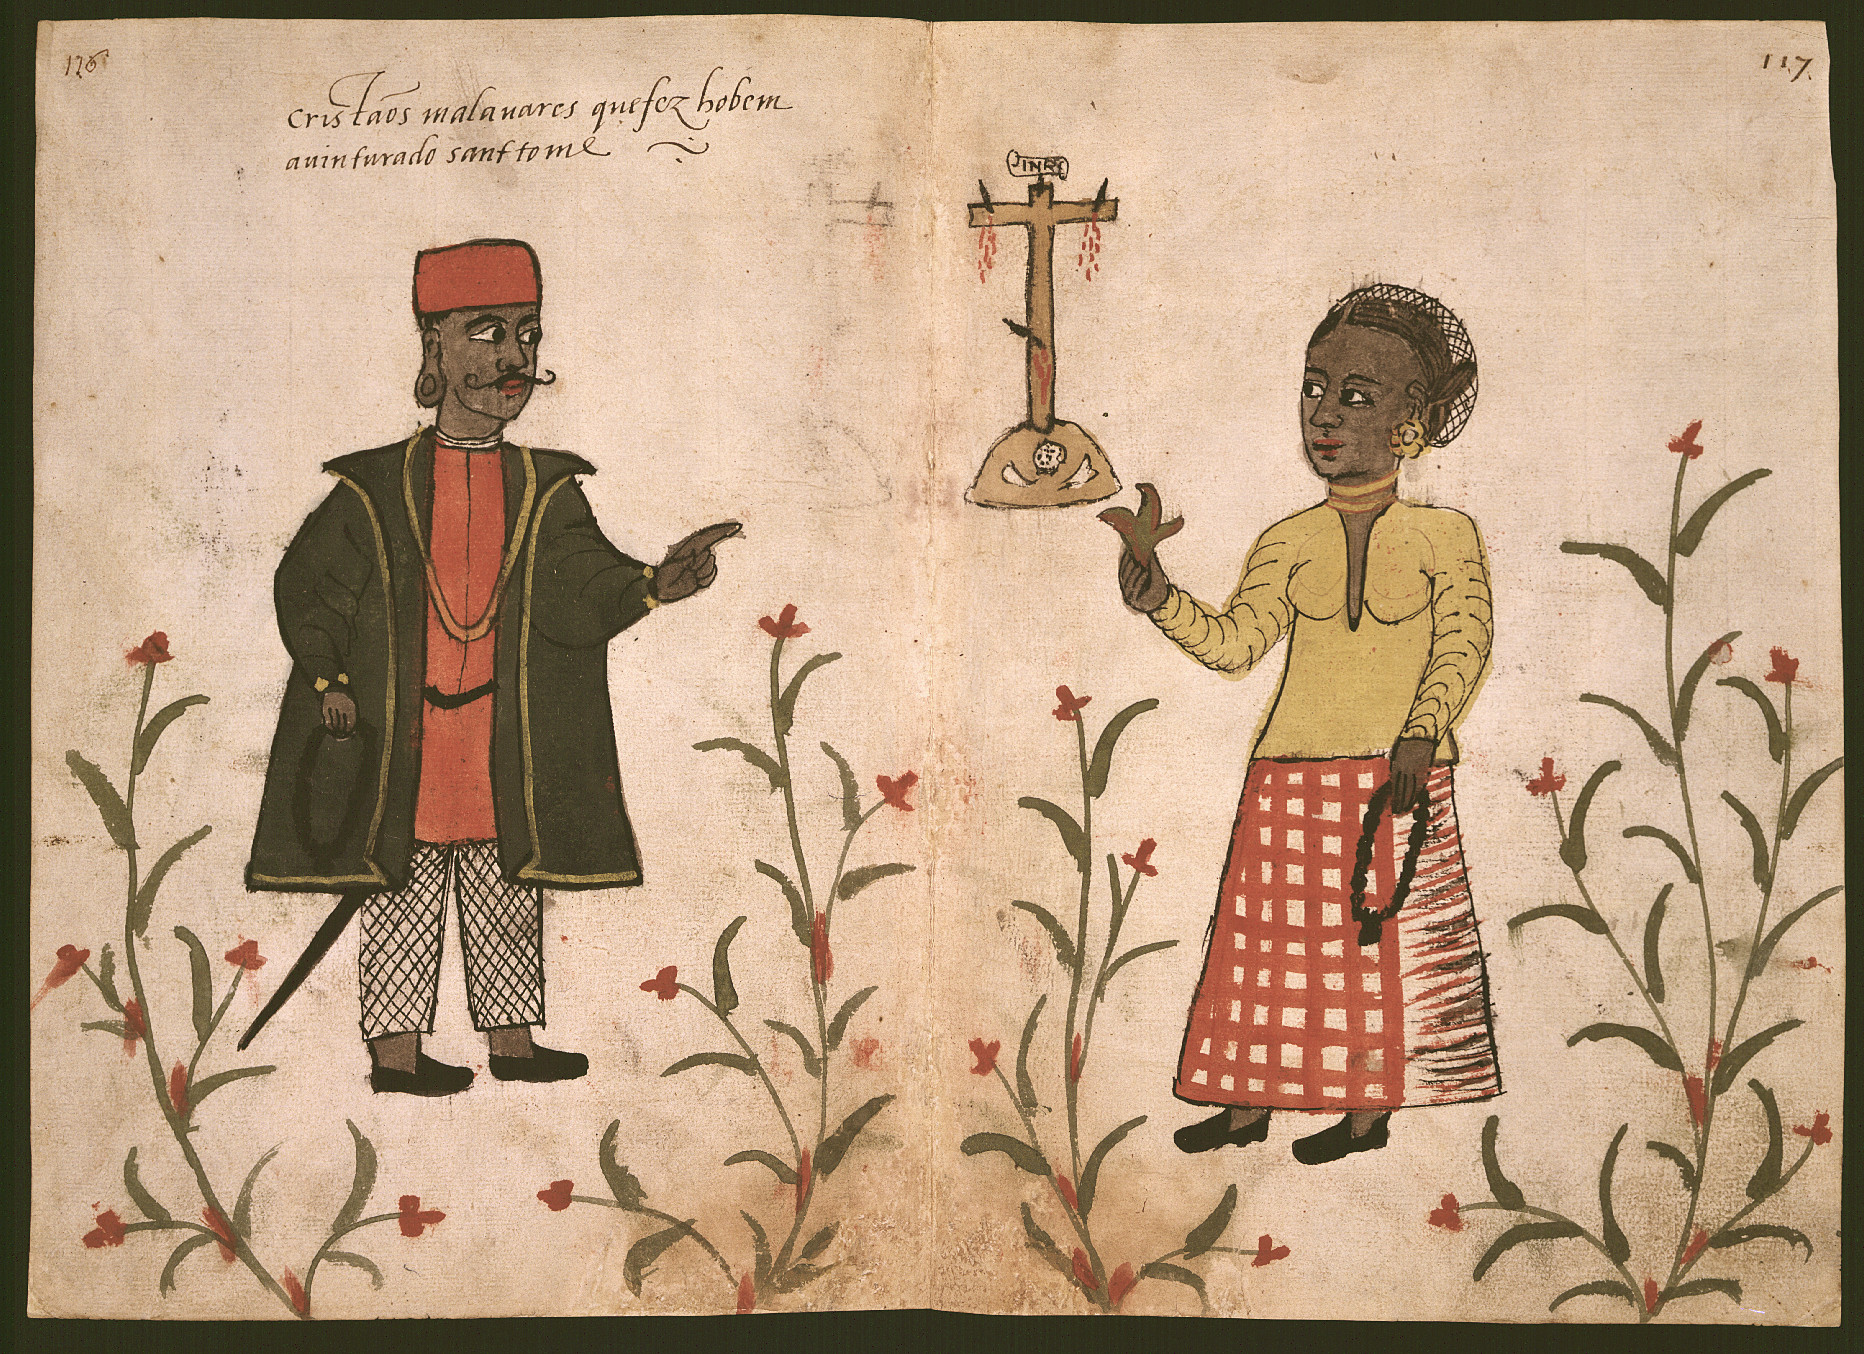 116
117
Cristaõs malauares que fez ho bem
auinturado santtome
INRI